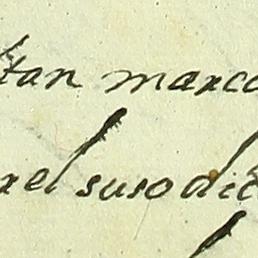 tan marco
rel susodic